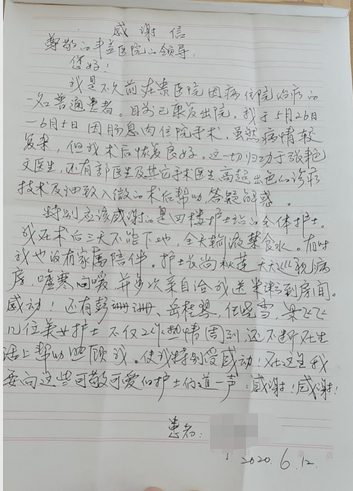 感谢信
尊敬的丰益医院的领导:
您好!
我是不久前在贵医院因病住院的
一名普通患者。目前已康复出院。我于5月26日
—6月5日因肠息肉住院手术。虽然病情较
复杂,但我术后恢复良好。这一切归功于张艳
文医生,还有郭医生及其它手术医生高超出色的诊疗
技术及细致入微的术后帮助、答疑解惑。
特别应该感谢的是四楼护士站的全体护士。
我在术后三天不能下地,全天输液禁食水。有时
我也没有家属陪伴。护士长尚秋莲天天巡视病
房,嘘寒问暖,并多次亲自给我送米粥到房间。
感动!还有彭珊珊、岳桂琴、任晓雪、梁飞飞
几位美女护士不仅工作热情周到还不断在生
活上帮助照顾我。使我特别受感动!在这里我
要向这些可敬可爱的护士们道一声:感谢!感谢!
患者:
2020.6.12